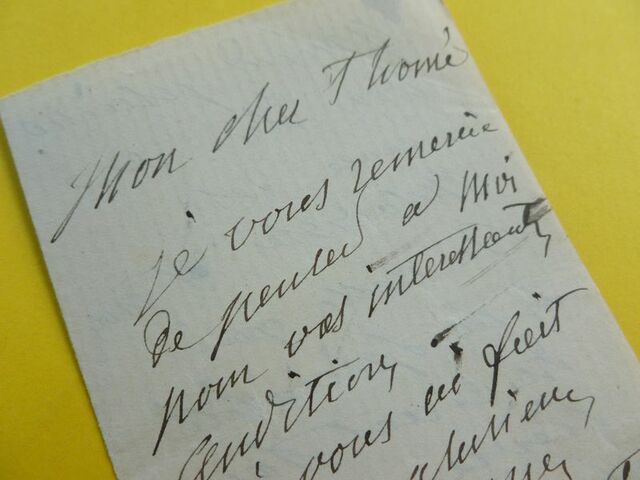 Mon cher Thomé
je vous remercie
de penser à moi
pour vos interessants
vous ai fait